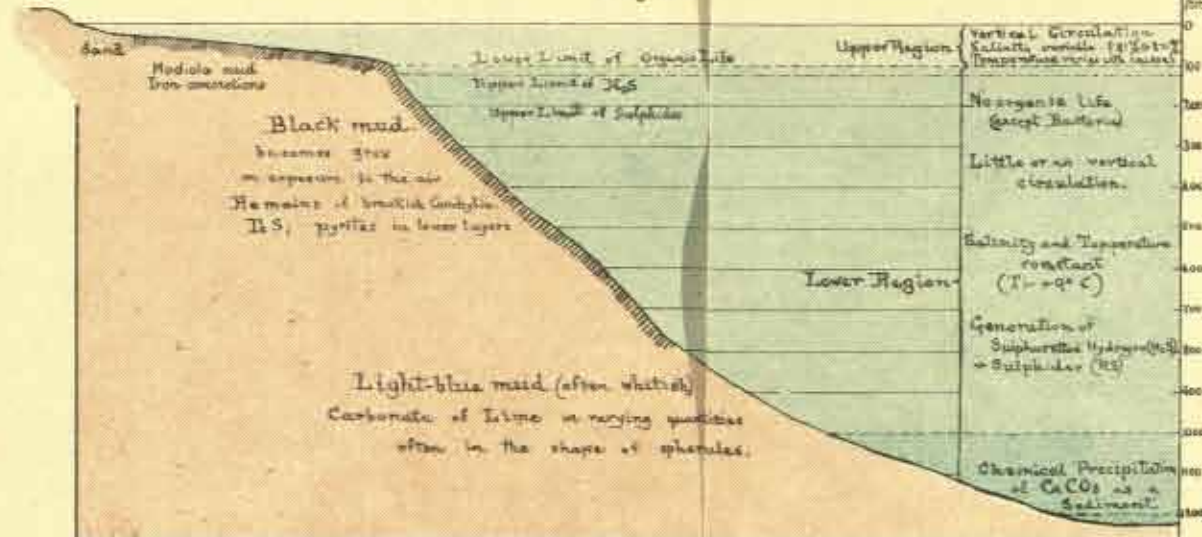 Sand
Modiola mud
Iron concretions
Black mud.
becomes grey
on exposure to the air
Remains of brackish Condylia
FeS, pyrites in lower layers
Light-blue mud (often whitish)
Carbonate of Lime in varying quantities
often in the shape of spherules.
Lower Limit of Organic Life
Upper Limit of H₂S
Upper Limit of Sulphides
Upper Region
Vertical Circulation
Salinity variable
Temperature varies with
No organic Life
(except Bacteria)
Little or no vertical
circulation.
Lower Region
Salinity and Temperature
constant
(T= +9° C)
Generation of
Sulphuretted Hydrogen (H₂S)
+ Sulphides (RS)
Chemical Precipitation
of CaCO₃ as a
Sediment
0
100
200
300